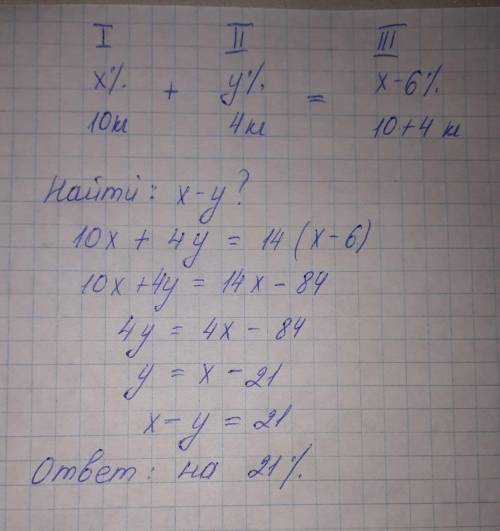 I II III
x% + y% = x-6%
10кг 4кг 10+4 кг
Найти: x-y?
10x + 4y = 14 (x-6)
10x+4y = 14x - 84
4y = 4x - 84
y = x - 21
x-y = 21
Ответ: на 21%.